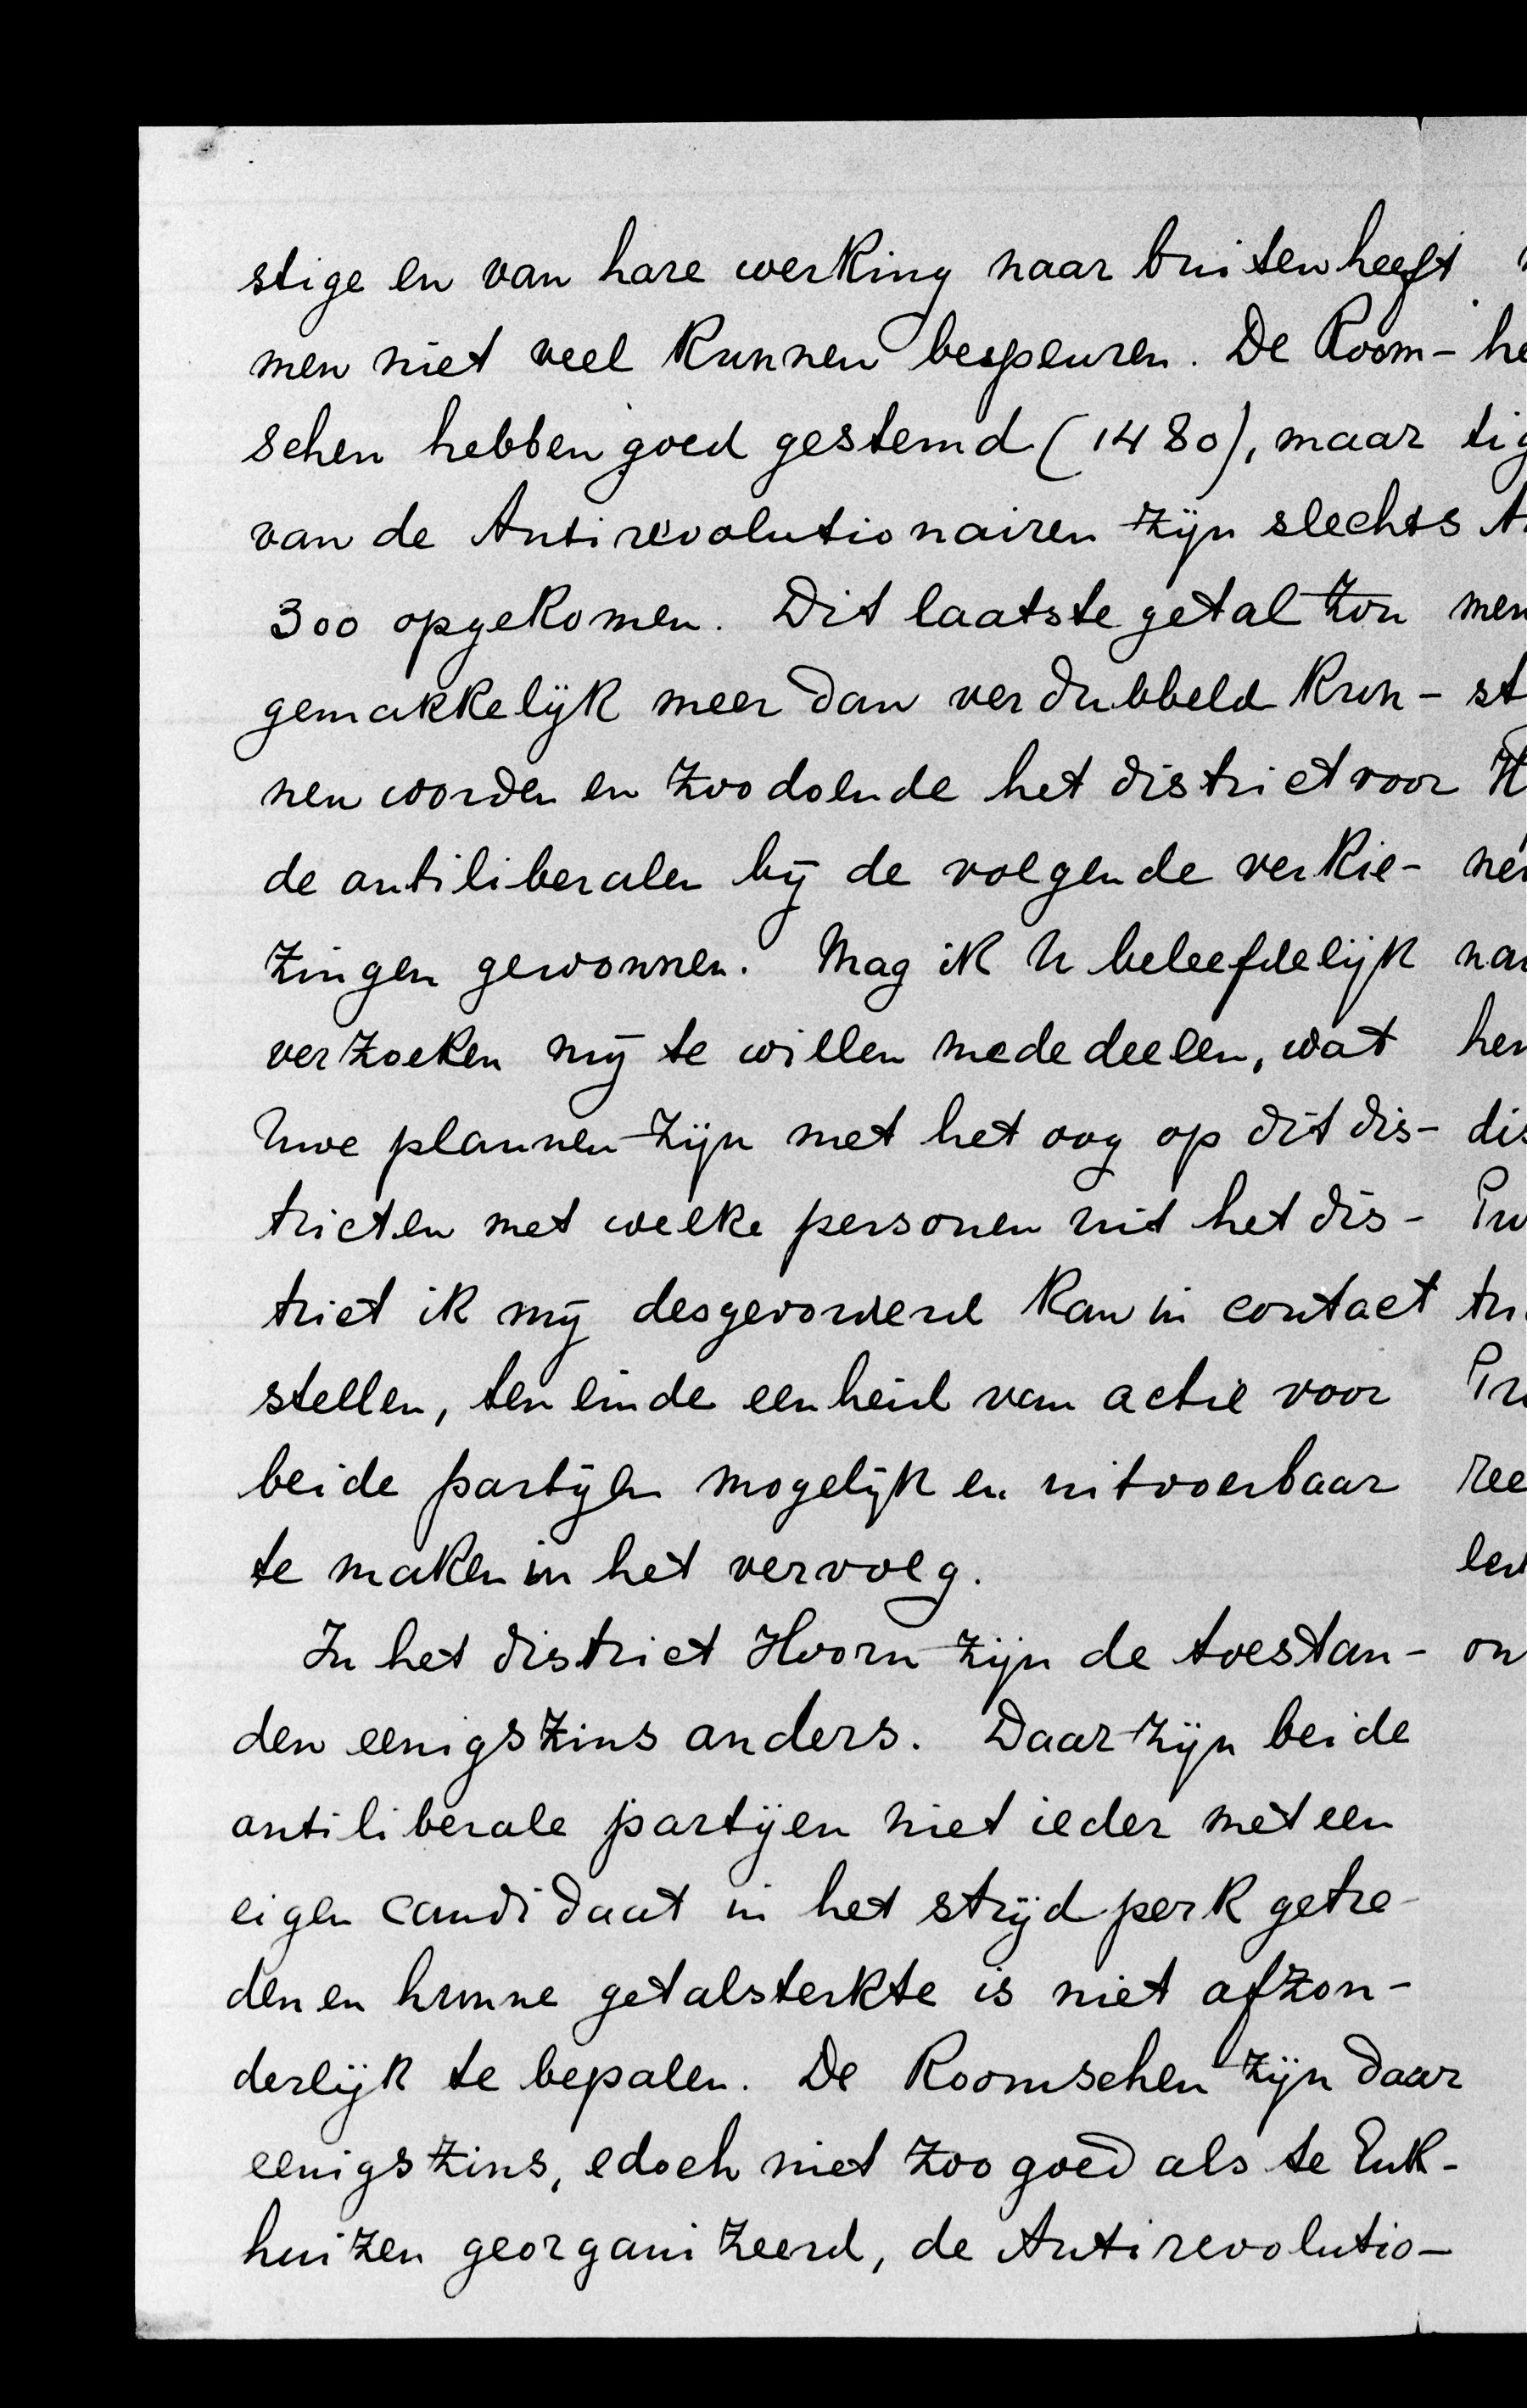 stige en van hare werking naar buiten heeft
men niet veel kunnen bespeuren. De Room-
schen hebben goed gestemd (1480), maar
van de Antirevolutionairen zijn slechts
300 opgekomen. Dit laatste getal zou
gemakkelijk meer dan verdubbeld kun-
nen worden en zoodoende het district voor
de antiliberalen bij de volgende verkie-
zingen gewonnen. Mag ik U beleefdelijk
verzoeken mij te willen mededeelen, wat
Uwe plannen zijn met het oog op dit dis-
trict en met welke personen uit het dis-
trict ik mij desgevorderd kan in contact
stellen, ten einde eenheid van actie voor
beide partijen mogelijk en uitvoerbaar
te maken in het vervolg.
In het district Hoorn zijn de toestan-
den eenigszins anders. Daar zijn beide
antiliberale partijen niet ieder met een
eigen candidaat in het strijdperk getre-
den en hunne getalsterkte is niet afzon-
derlijk te bepalen. De Roomschen zijn daar
eenigszins, edoch niet zoo goed als te Enk-
huizen georganizeerd, de Antirevolutio-